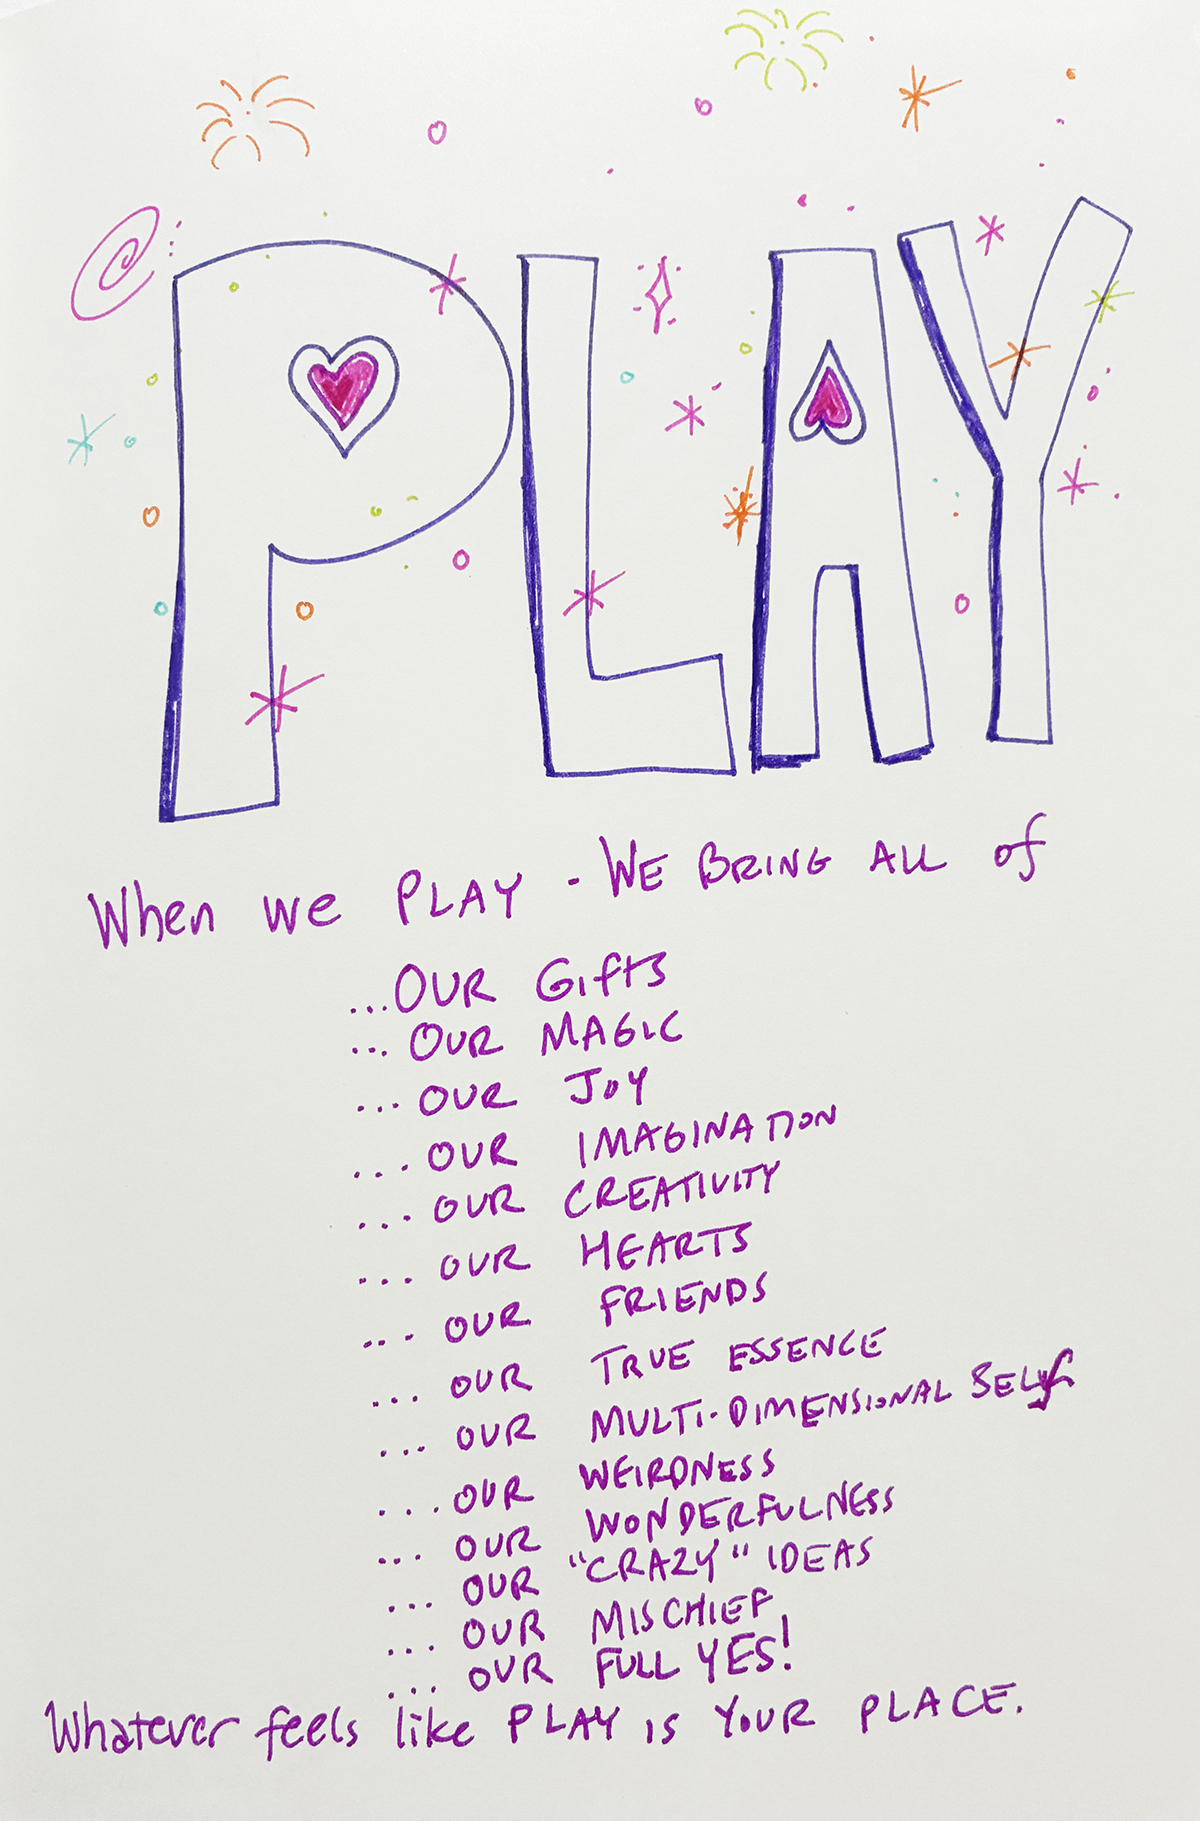 PLAY
When we PLAY - WE BRING ALL of
...OUR GifTS
... OUR MAGIC
... OUR JOY
... OUR IMAGINATION
... OUR CREATIVITY
... OUR HEARTS
... OUR FRIENDS
... OUR TRUE ESSENCE
... OUR MULTI-DIMENSIONAL SELf
... OUR WEIRDNESS
... OUR WONDERFULNESS
... OUR "CRAZY" IDEAS
... OUR MISCHIEF
... OUR FULL YES!
Whatever feels like PLAY is YOUR PLACE.